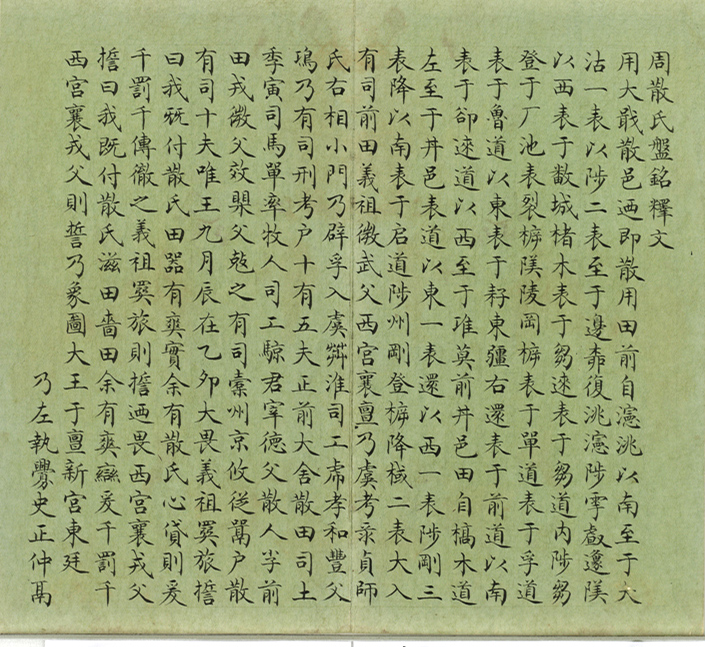 周散氏盤銘釋文
用大戩散邑迺即散用田前自瀗洮以南至于大
沽一表以陟二表至于邊柰復洮瀗陟雩𠭯邍𨻰
以西表于敽城楮木表于芻逨表于芻道內陟芻
登于厂池表裂㯠𨻰陵岡㯠表于單道表于孚道
表于魯道以東表于耔東疆右還表于前道以南
表于卻逨道以西至于琟莫前井邑田自槁木道
左至于井邑表道以東一表還以西一表陟剛三
表降以南表于启道陟州剛登㯠降棫二表大入
有司前田義祖微武父西宮襄亶乃虞考彔貞師
氏右相小門乃辟孚入虞茻淮司工虎孝和豐父
鳿乃有司刑考户十有五夫正前大舍散田司土
季寅司馬單率牧人司工騬君宰德父散人芈前
田戎微父效㮚父𠡠之有司橐州京攸從䍐户散
有司十夫唯王九月辰在乙夘大畏義祖𡪢旅𢶡
曰我既付散氏田器有爽實余有散氏心貸則爰
千罰千傳徹之義祖𡪢旅則𢶡迺畏西宮襄戎父
𢶡曰我既付散氏滋田嗇田余有爽䜌爰千罰千
西宮襄戎父則誓乃象圖大王于亶新宮東廷
乃左執爂史正仲鬲